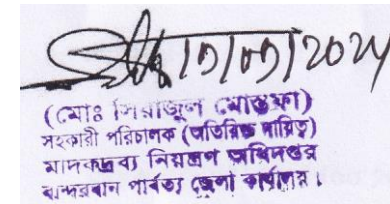 (মোঃ সিরাজুল মোস্তফা)
সহকারী পরিচালক (অতিরিক্ত দায়িত্ব)
মাদকদ্রব্য নিয়ন্ত্রণ অধিদপ্তর
বান্দরবান পার্বত্য জেলা কার্যালয়।